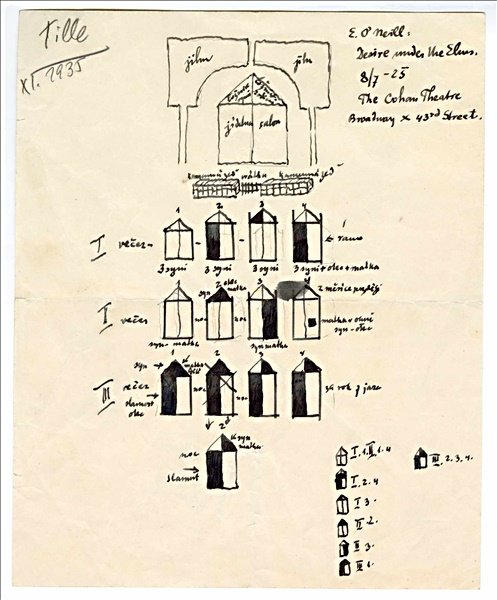 Tille
XI. 1935
E. O'Neill:
Desire under the Elms.
8/7-25
The Cohan Theatre
Broadway x 43rd Street.
jilm jilm
ložnice
jídelna salon
kamenná zeď vrátka kamenná zeď
1 2 3 4
I večer
← ráno
3 syni 3 syni 3 syni 3 syni + otec + matka
1 2 3 4
II večer
syn otec matka
noc noc
z měsíce později
matka v okně
syn-otec
syn-matka syn matka
1 2 3 4
III večer
syn → matka
noc noc
slamník
otec
za rok z jara
2
noc
syn
matka
slamník
I. 1. II. 1. 4
I. 2. 4
I 3.
II 2.
II 3.
III 1.
III. 2. 3. 4.